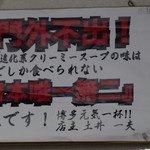 門外不出!
進化系クリーミースープの味は
でしか食べられない
日本唯一無二
です!
博多元気一杯!!
店主 土井 一夫